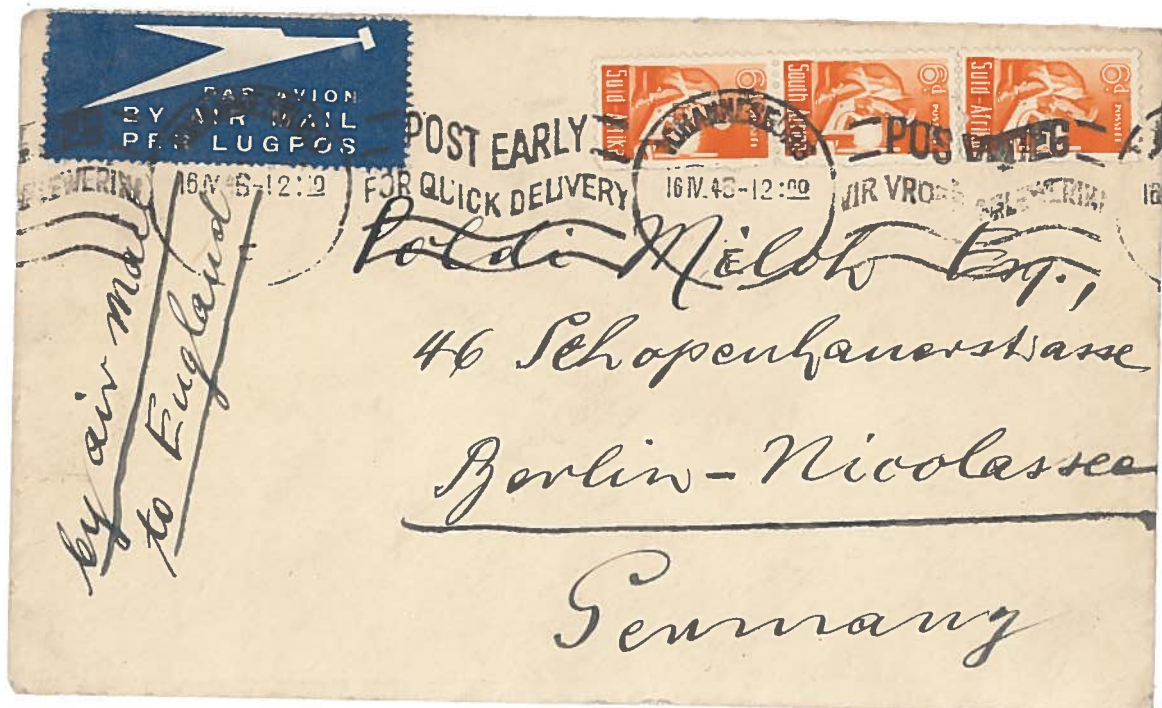 PAR AVION
BY AIR MAIL
PER LUGPOS
Suid-Afrika 6d. POSSEËL
South 6d. POSTAGE
Suid-Afrika 6d. POSSEËL
POST EARLY
FOR QUICK DELIVERY
JOHANNESBURG
16 IV. 46-12:00
POS VROEG
VIR VROEË AFLEWERING
16 IV 46-12:00
AFLEWERING
16
by air mail
to England
Poldi Milch Esq.,
46 Schopenhauerstrasse
Berlin - Nicolassee
Germany